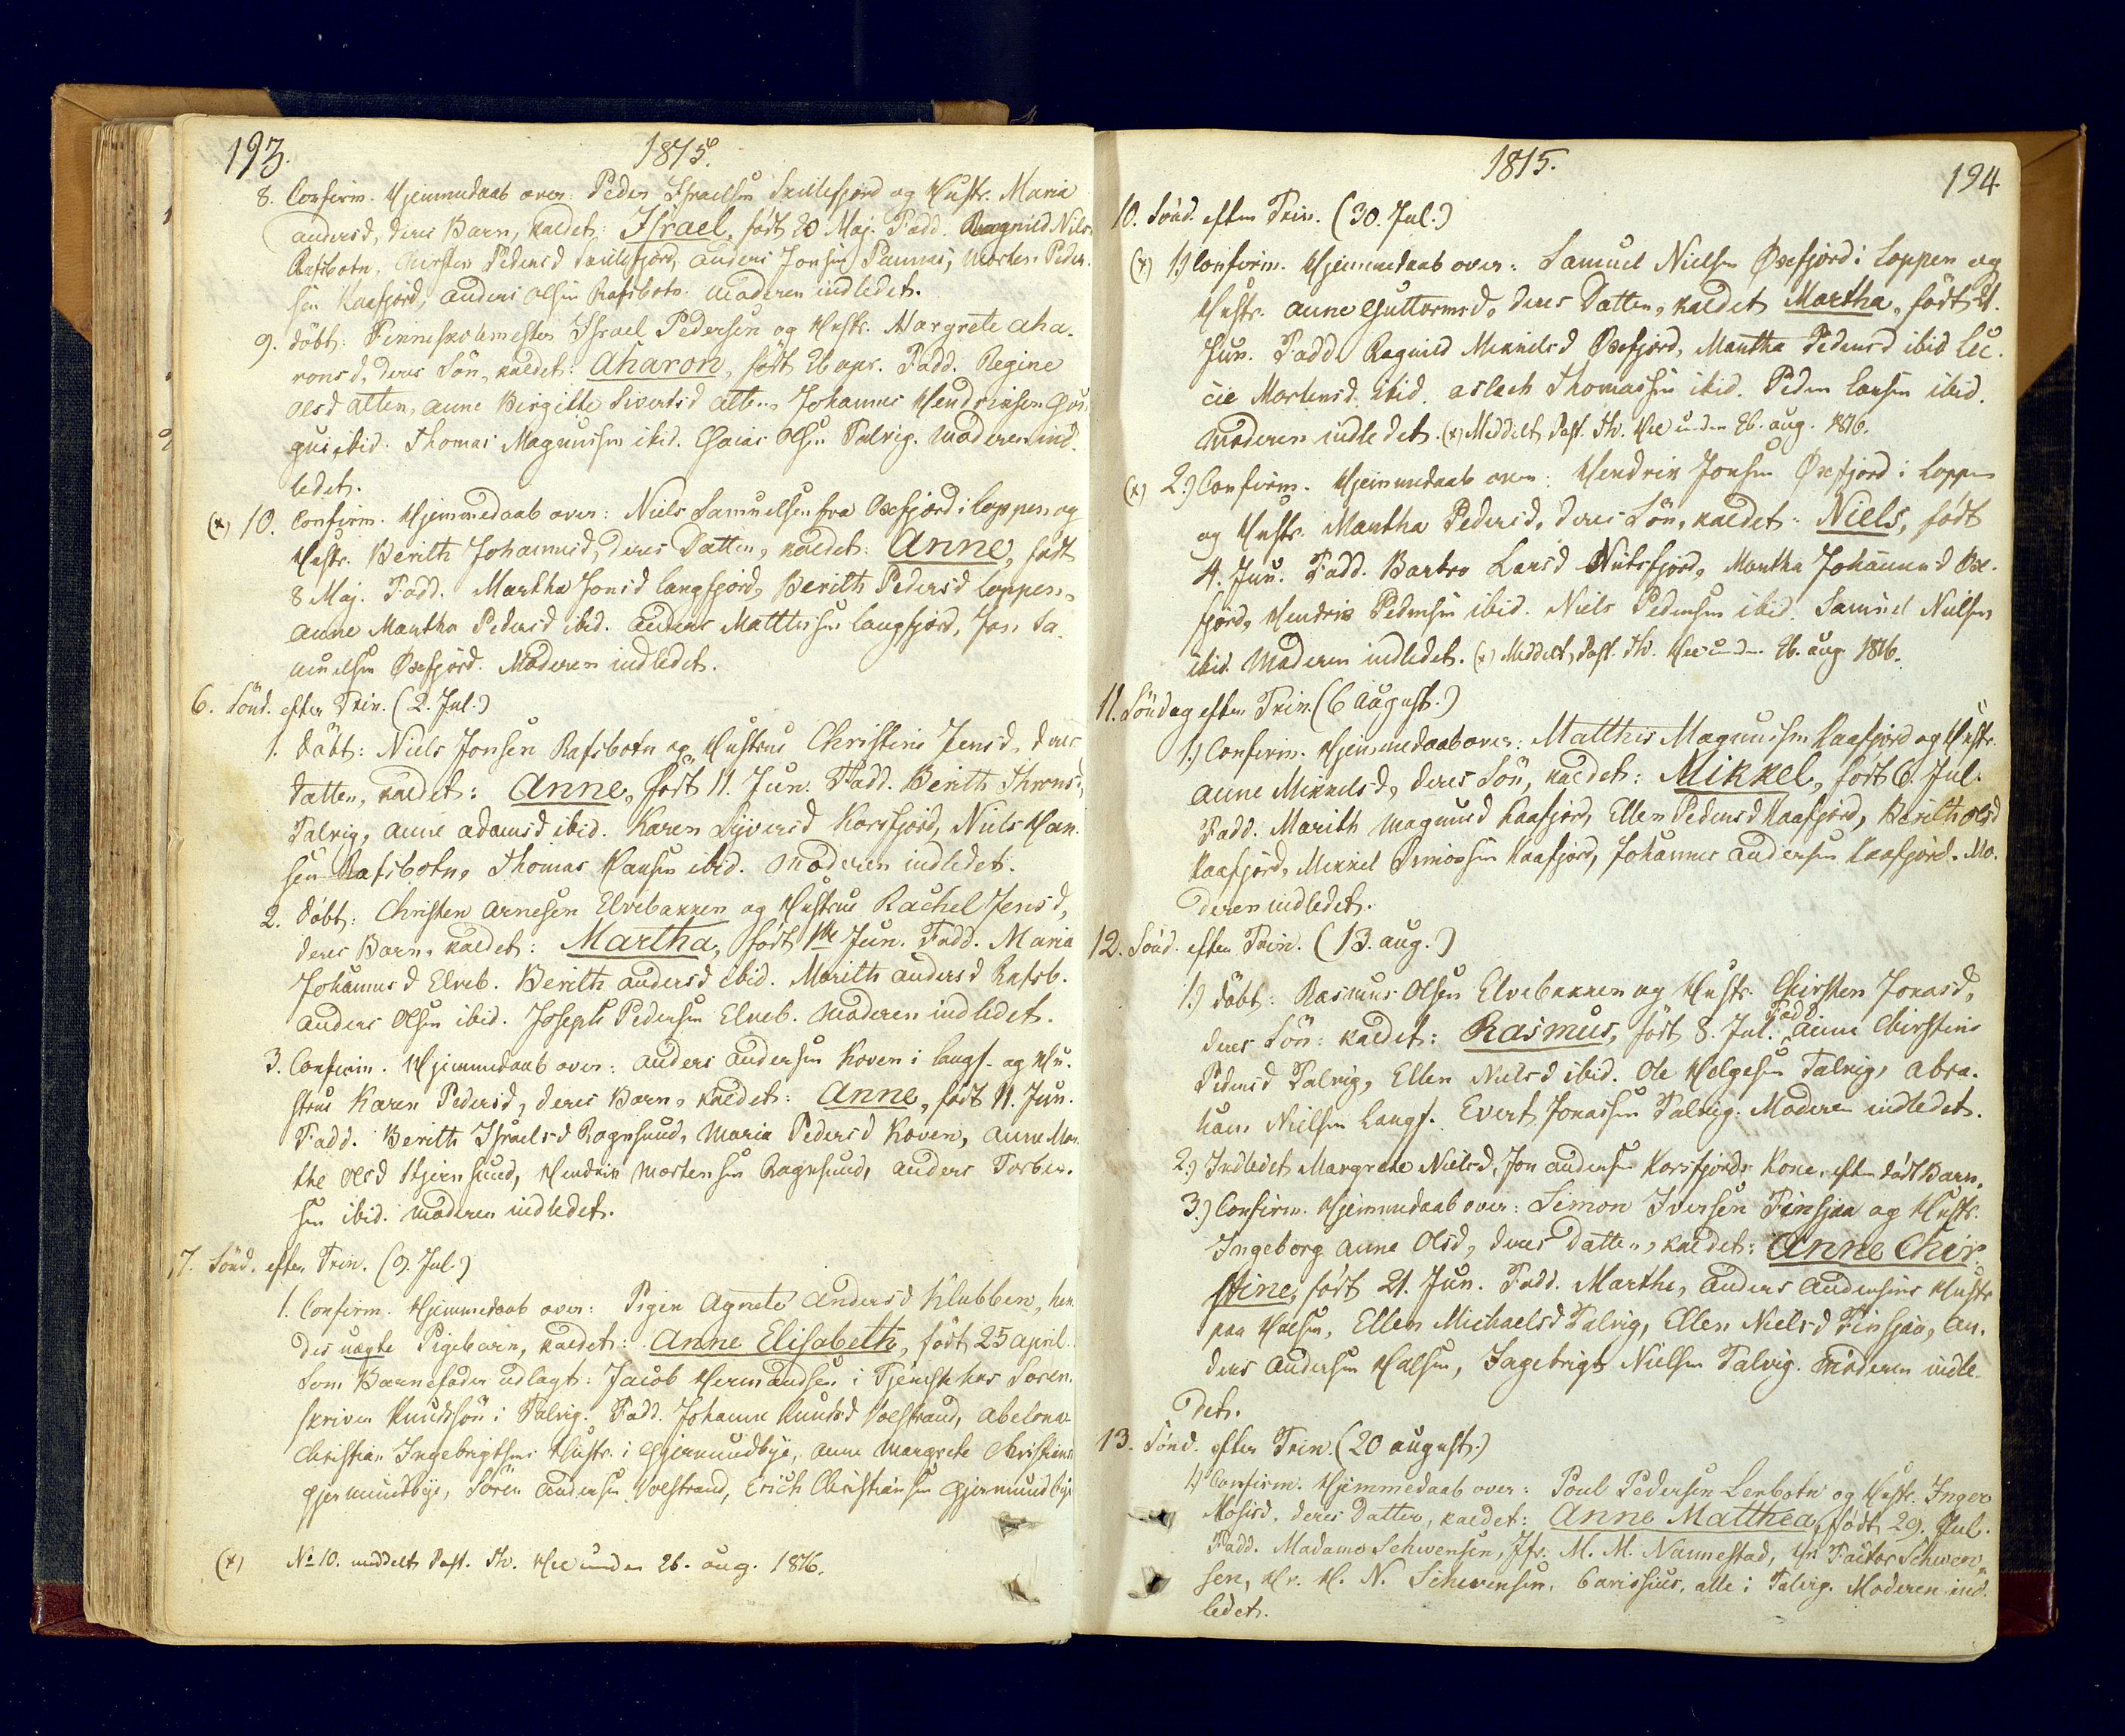 193.
1815.
8. Confirm. Hjemmedaab over: Peder Israelsen Skillefjord og Hustr. Maria
Andersd, deres Barn, kaldet: Israel, født 20 Maj. Fadd. Ragnild Nils
Rafsbotn, Kirsten Pedersd Skillefjord, Anders Jonsen Morten Peder-
sen Kaafjord, Anders Olsen Rafsbotn. Moderen indledet.
9. Døbt: Finneskolemester Israel Pedersen og Hustr. Margrete Aha-
ronsd, deres Søn, kaldet: Aharon, født 26 apr. Fadd. Regine
Olsd Alten, Anne Birgitte Sivertsd Alten, Johannes Hendriksen
ibid. Thomas Magnussen ibid. Esaias Olsen Talvig. Moderen ind-
ledet.
(x) 10. Confirm. Hjemmedaab over: Niels Samuelsen fra Oxefjord i Loppen og
Hustr. Berith Johannisd, deres Datter, kaldet: Anne, født
8 Maj. Fadd. Martha Jonsd Langfjord, Berith Pedersd Loppen,
Anne Martha Pedersd ibid. Anders Matthisen Langfjord, Jon Sa-
muelsen Oxefjord. Moderen indledet.
6. Sönd. efter Trin. (2. Jul.)
1. Døbt: Niels Jonsen Rafsbotn og Hustrue Christine Jensd, deres
Datter, kaldet: Anne, født 11. Jun. Fadd. Berith Thomsd
Talvig, Anne Adamsd ibid. Karen Syversd Korsfjord, Niels Han-
sen Rafsbotn, Thomas Hansen ibid. Moderen indledet.
2. Døbt: Christen Arnesen Elvebakken og Hustrue Rachel Jensd,
deres Barn, kaldet: Martha, født 1ste Jun. Fadd. Maria
Johannisd Elveb. Berith Andersd ibid. Marith Andersd Rafsb.
Anders Olsen ibid. Joseph Pedersen Elveb. Moderen indledet.
3. Confirm. Hjemmedaab over: Anders Andersen Koven i Langf. og Hu-
strue Karen Pedersd, deres Barn, kaldet: Anne, født 11. Jun.
Fadd. Berith Israelsd Rognsund, Maria Pedersd Koven, Anne Mar-
the Olsd Stjernsund, Hendrik Mortensen Rognsund, Anders Torber-
sen ibid. Moderen indledet.
7. Sönd. efter Trin. (9. Jul.)
1. Confirm. Hjemmedaab over: Pigen Agnete Andersd Klubben, hen-
des uægte Pigebarn, kaldet: Anne Elisabeth, født 25 april.
Som Barnefader udlagt: Jacob Hermandsen i Tjeneste hos Soren-
skriver Knudssön i Talvig. Fadd. Johanne Knudsd Volstrand, Abelona
Christian Ingebrigtsens Hustr. i Gjermundbye, Anne Margrete Christians
Gjermundbye, Sören Andersen Volstrand, Erich Christiansen Gjermundbye
(x) No 10. meddelt Past. Th. Hee under 26. aug. 1816.
1815.
194
10. Sönd. efter Trin. (30. Jul.)
(x) 1.) Confirm. Hjemmedaab over: Samuel Nielsen Oxefjord i Loppen og
Hustr. Anne Guttormsd, deres Datter, kaldet Martha, født
Jun. Fadd. Ragnild Mikkelsd Oxefjord, Martha Pedersd ibid Lec-
cie Mortensd ibid. Aslach Thomassen ibid. Peder Larsen ibid.
Moderen indledet. (x) Meddelt Past. Th. Hee under 26. aug. 1816.
(x) 2.) Confirm. Hjemmedaab over: Hendrik Jonsen Oxefjord i Loppen
og Hustr. Martha Pedersd, deres Søn, kaldet: Niels, født
4. Jun. Fadd. Barbro Larsd Martha Johannisd Oxe-
fjord, Hendrik Pedersen ibid. Niels Pedersen ibid. Samuel Nielsen
ibid. Moderen indledet. (x) Meddelt Past. Th. Hee under 26. aug 1816.
11. Söndag efter Trin. (6 August.)
1.) Confirm. Hjemmedaab over: Matthis Magnussen Kaafjord og Hustr.
Anne Mikkelsd, deres Søn, kaldet: Mikkel, født 6. Jul.
Fadd. Marith Magnusd Kaafjord, Ellen Pedersd Kaafjord, Berith Olsd
Kaafjord, Mikkel Simonsen Kaafjord, Johannes Andersen Kaafjord. Mo-
deren indledet.
12. Sönd. efter Trin. (13. aug.)
1.) Døbt: Rasmus Olsen Elvebakken og Hustr. Chirsten Jonasd,
deres Søn: kaldet: Rasmus, født 8. Jul. Fadd. Anne Chirstine
Pedersd Talvig, Ellen Nielsd ibid. Ole Helgesen Talvig, Abra-
ham Nielsen Langf. Evert Jonassen Talvig. Moderen indledet.
2.) Indledet Margrete Nielsd, Jon Andersen Korsfjords Kone, efter dødt Barn.
3.) Confirm. Hjemmedaab over: Simon Iversen Finsjaa og Hustr.
Ingeborg Anne Olsd, deres Datter, kaldet: Anne Chir-
stine, født 21. Jun. Fadd. Marthe, Anders Andersens Hustr
paa Halsen, Ellen Michaelsd Talvig, Ellen Nielsd Finsjaa, An-
ders Andersen Halsen, Ingebrigt Nielsen Talvig. Moderen indle-
det.
13. Sönd. efter Trin. (20 august.)
1.) Confirm. Hjemmedaab over: Poul Pedersen Lerbotn og Hustr. Inger
Mosisd. deres Datter, kaldet: Anne Matthea, født 29. Jul.
Fadd. Madame Schwensen, Jfr. M. M. Nannestad, Hr. Factor Schwen-
sen, Hr. H. N. Schwensen, Carissius, alle i Talvig. Moderen ind-
ledet.